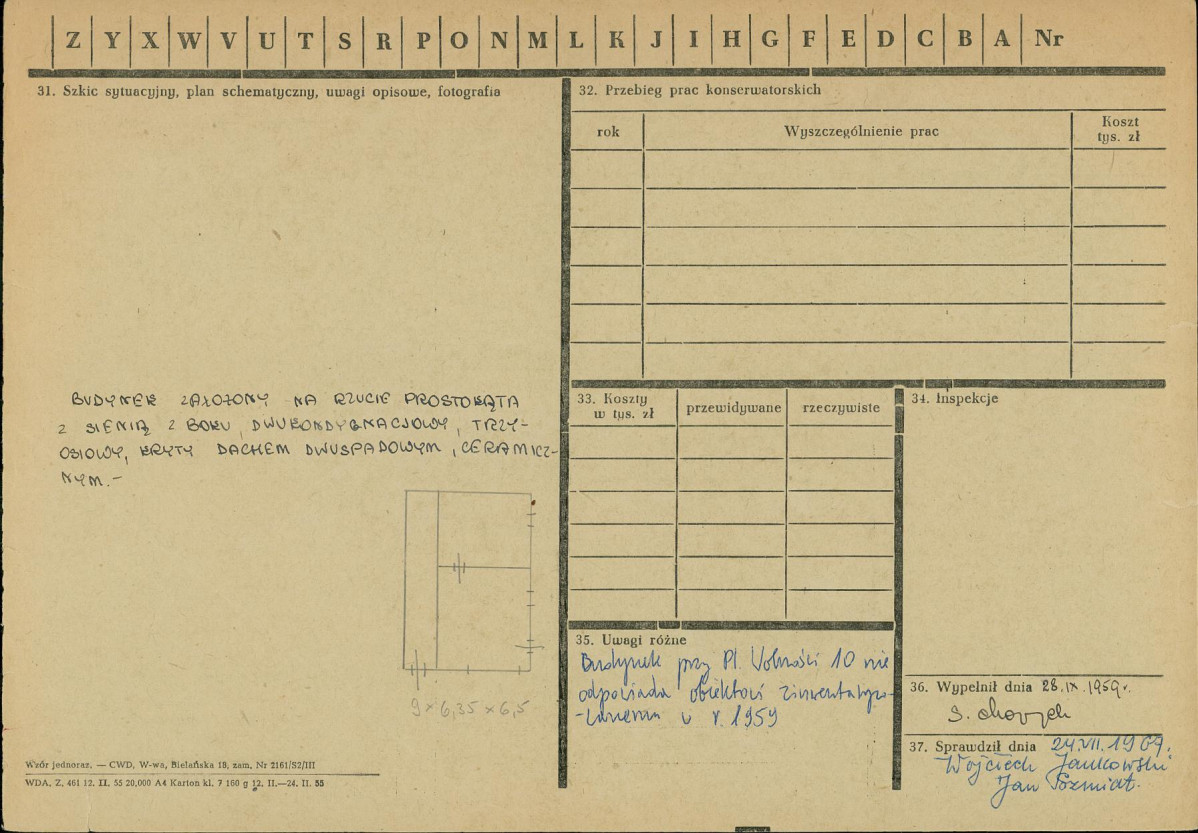 Z Y X W V U T S R P O N M L K J I H G F E D C B A Nr
31. Szkic sytuacyjny, plan schematyczny, uwagi opisowe, fotografia
BUDYNEK ZAŁOŻONY NA RZUCIE PROSTOKĄTA
Z SIENIĄ Z BOKU, DWUKONDYGNACJOWY, TRZY-
OSIOWY, KRYTY DACHEM DWUSPADOWYM, CERAMICZ-
NYM.-
9 × 6,35 × 6,5
Wzór jednoraz. — CWD, W-wa, Bielańska 18, zam. Nr 2161/S2/III
WDA. Z. 461 12. II. 55 20,000 A4 Karton kl. 7 160 g 12. II.—24. II. 55
32. Przebieg prac konserwatorskich
rok
Wyszczególnienie prac
Koszt
tys. zł
33. Koszty
w tys. zł
przewidywane
rzeczywiste
34. Inspekcje
35. Uwagi różne
Budynek przy Pl. Wolności 10 nie
odpowiada obiektowi zinwentaryzo-
-wanemu w r. 1959
36. Wypełnił dnia 28.IX.1959r.
S.
37. Sprawdził dnia 24.VII.1967.
Wojciech Jankowski
Jan